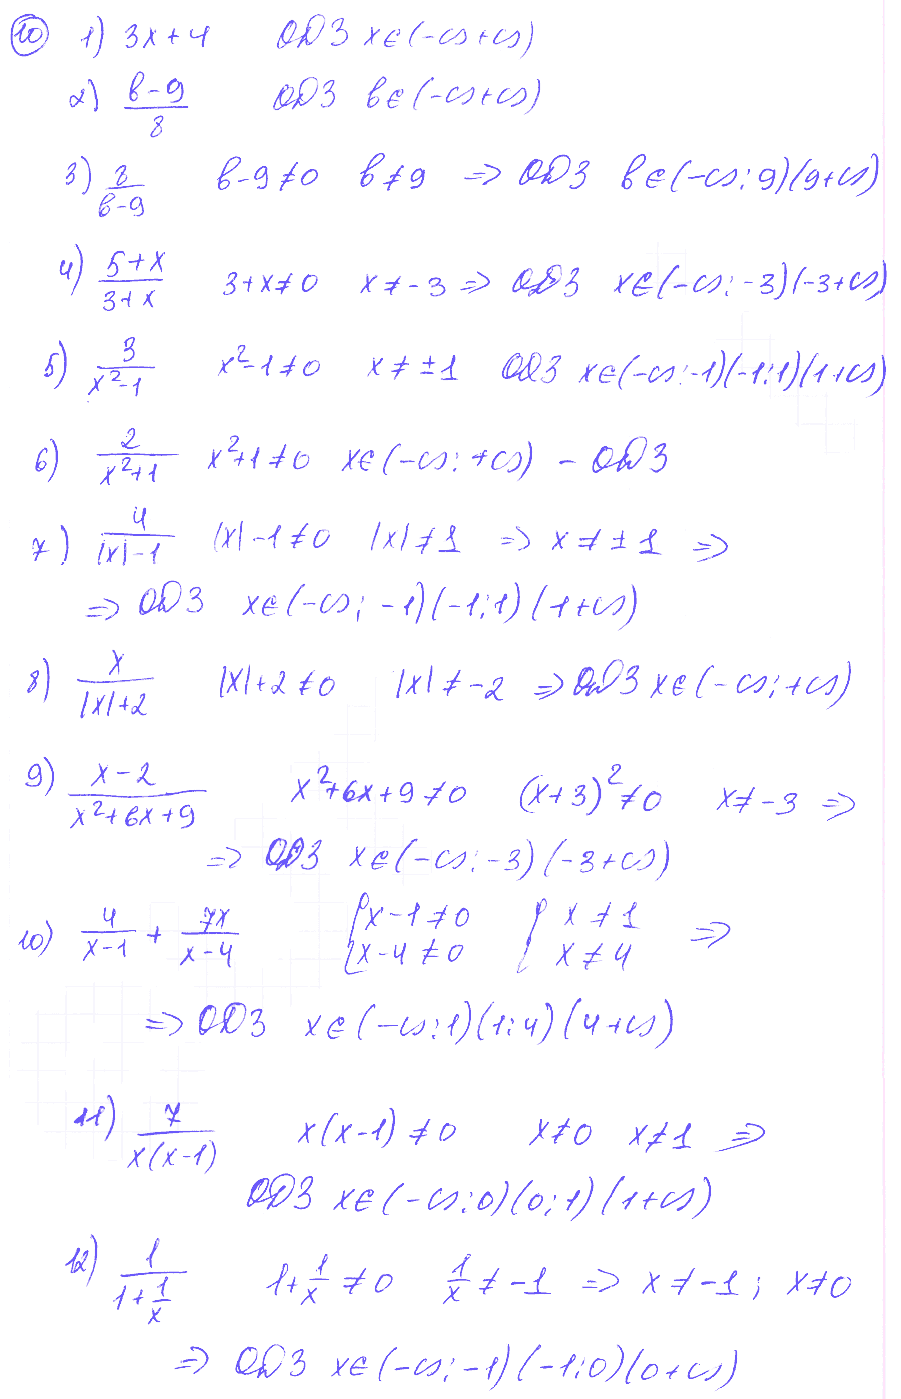 10 1) 3x+4 ОДЗ x∈(-∞+∞)
2) \frac{в-9}{8} ОДЗ в∈(-∞+∞)
3) \frac{3}{в-9} в-9≠0 в≠9 => ОДЗ в∈(-∞;9)(9+∞)
4) \frac{5+x}{3+x} 3+x≠0 x≠-3 => ОДЗ x∈(-∞;-3)(-3+∞)
5) \frac{3}{x²-1} x²-1≠0 x≠±1 ОДЗ x∈(-∞;-1)(-1;1)(1+∞)
6) \frac{2}{x²+1} x²+1≠0 x∈(-∞;+∞) - ОДЗ
7) \frac{4}{|x|-1} |x|-1≠0 |x|≠1 => x≠±1 =>
=> ОДЗ x∈(-∞;-1)(-1;1)(1+∞)
8) \frac{x}{|x|+2} |x|+2≠0 |x|≠-2 => ОДЗ x∈(-∞;+∞)
9) \frac{x-2}{x²+6x+9} x²+6x+9≠0 (x+3)²≠0 x≠-3 =>
=> ОДЗ x∈(-∞;-3)(-3+∞)
10) \frac{4}{x-1} + \frac{7x}{x-4} { x-1≠0 x-4≠0 { x≠1 x≠4 =>
=> ОДЗ x∈(-∞;1)(1;4)(4+∞)
11) \frac{7}{x(x-1)} x(x-1)≠0 x≠0 x≠1 =>
ОДЗ x∈(-∞;0)(0;1)(1+∞)
12) \frac{1}{1+\frac{1}{x}} 1+\frac{1}{x}≠0 \frac{1}{x}≠-1 => x≠-1; x≠0
=> ОДЗ x∈(-∞;-1)(-1;0)(0+∞)